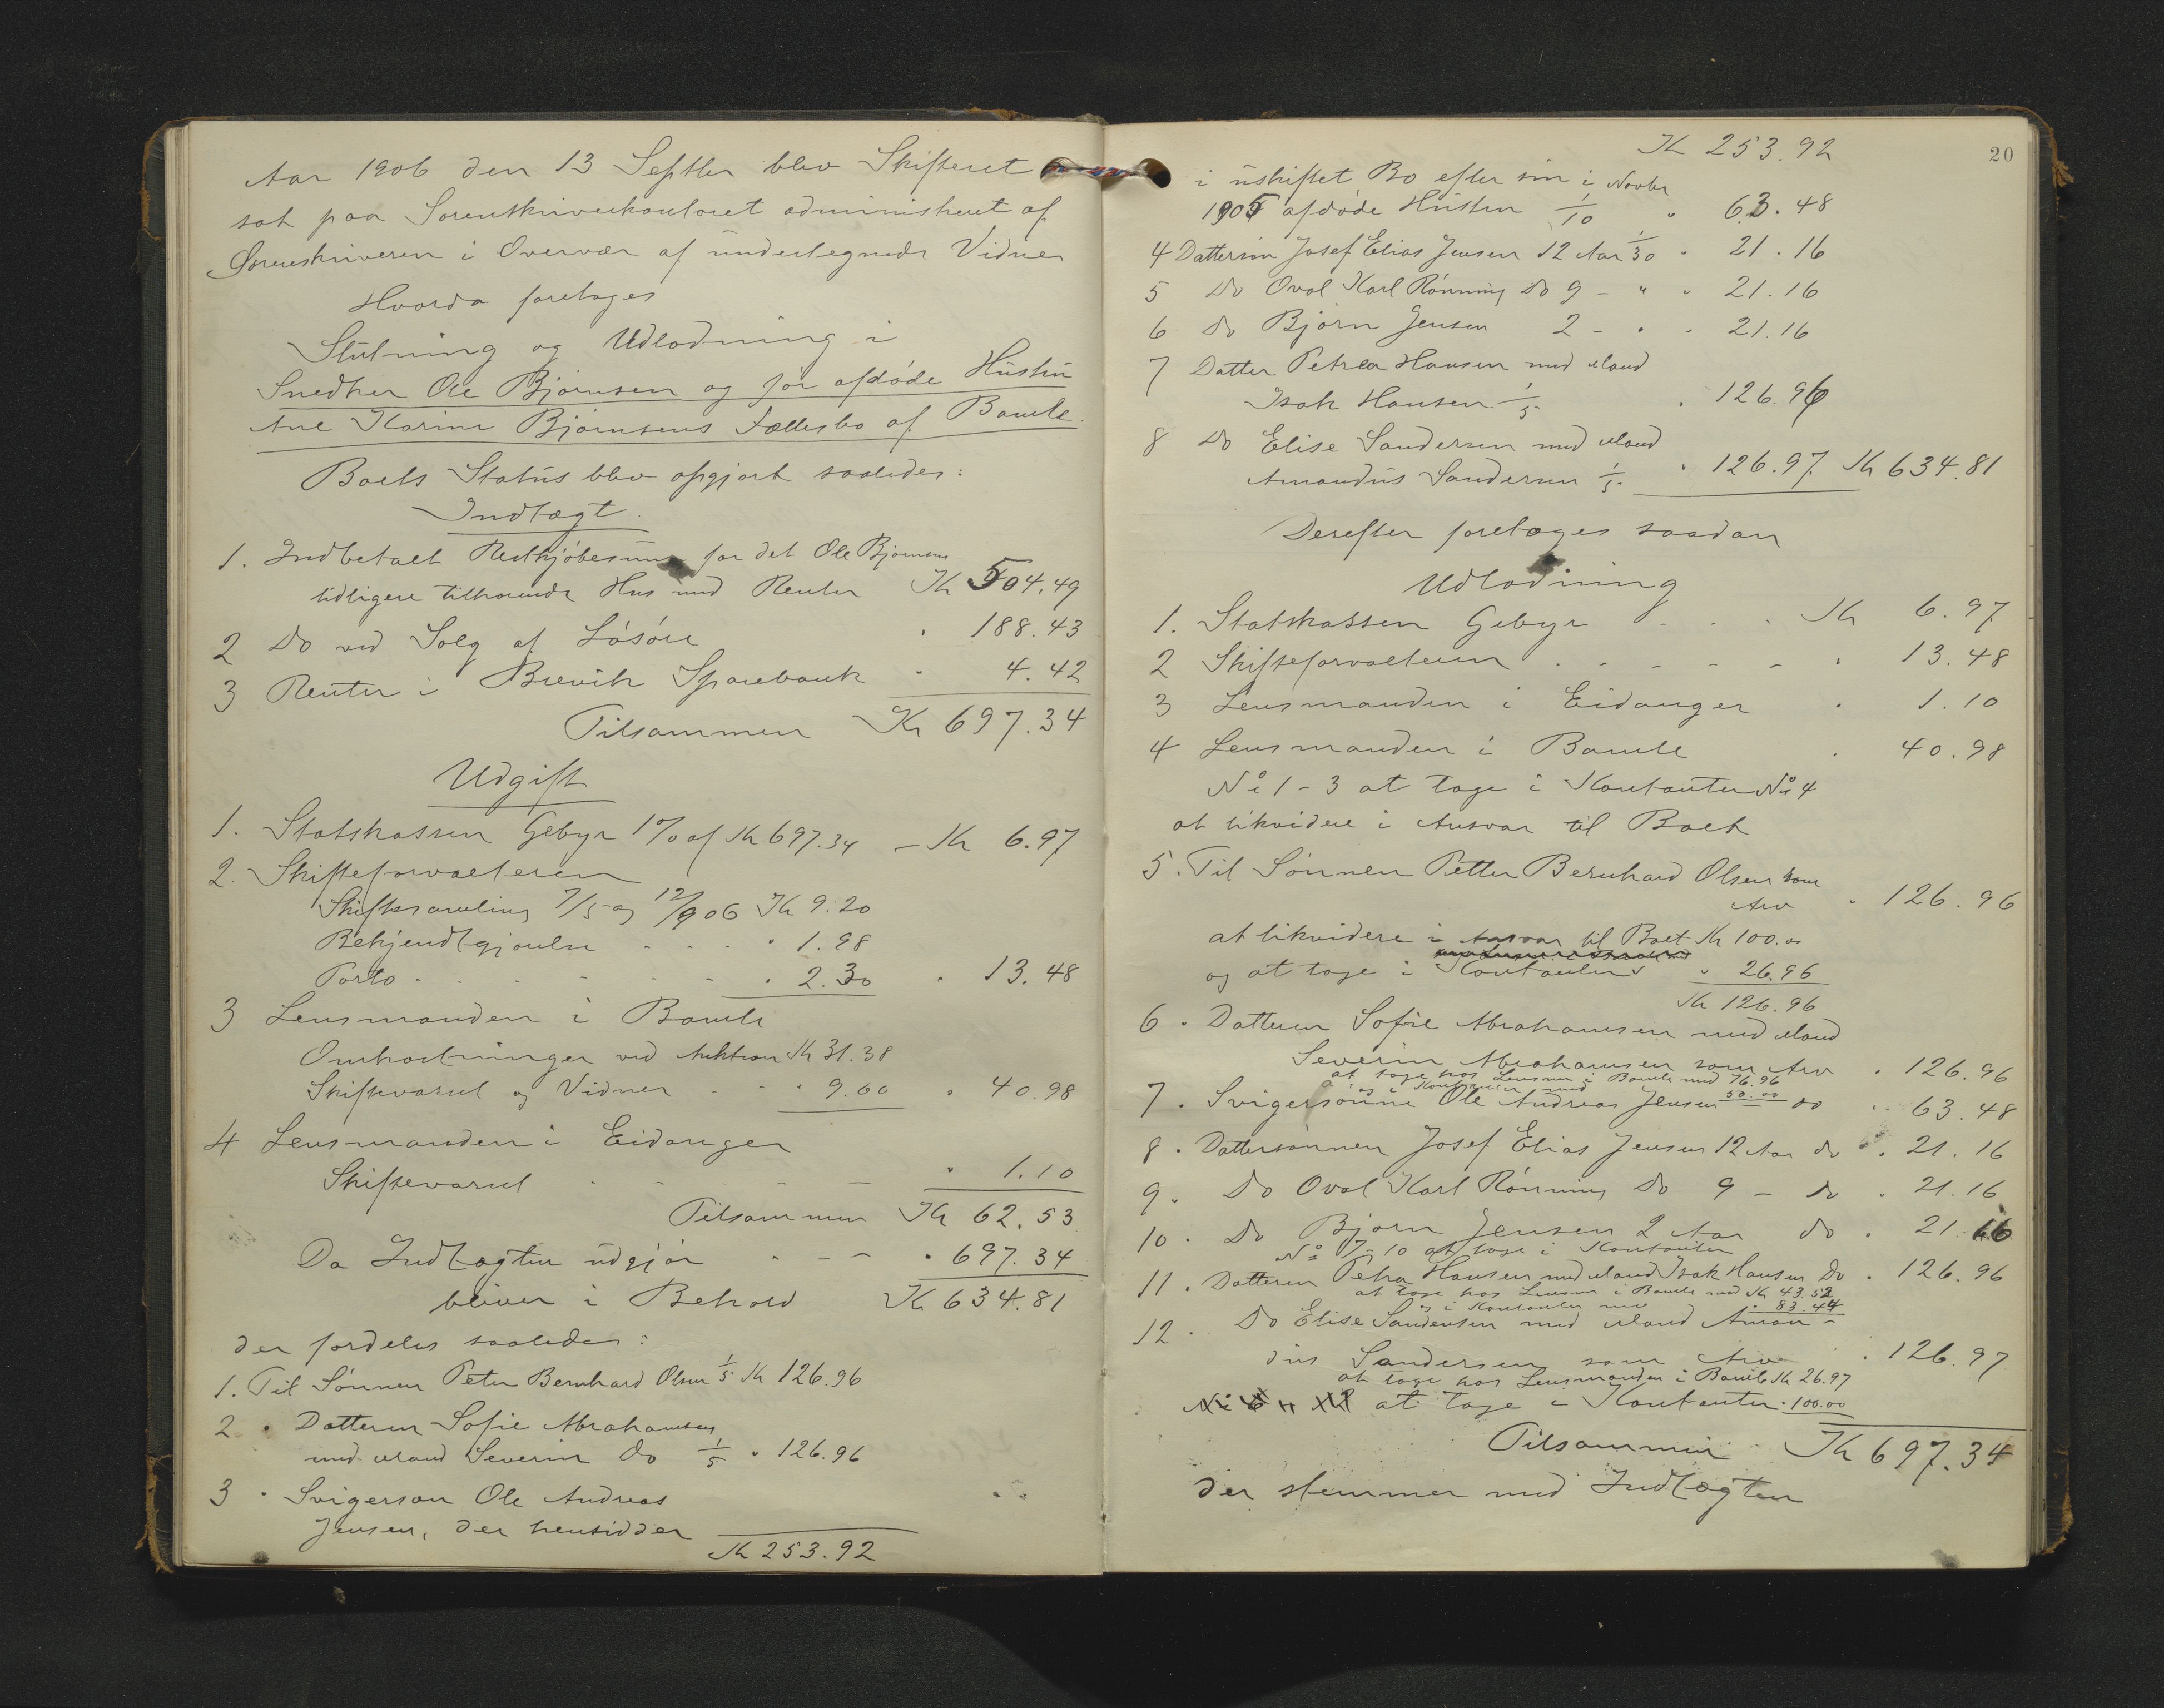 Aar 1906 den 13 Septbr blev Skifteret
sat paa Sorenskriverkontoret administreret af
Sorenskriveren i Overvær af undertegnede Vidner
Hvorda foretages
Slutning og Udlodning i
Snedker Ole Bjørnsen og før afdøde Hustru
Ane Karine Bjørnsens Fællesbo af Bamle.
Boets Status blev opgjort saaledes:
Indtægt.
1. Indbetalt Restkjøbesum for det Ole Bjørnsen
tidligere tilhørende Hus med Renter Kr 504,49
2 Do ved Salg af Løsøre " 188.43
3 Renter i Brevik Sparebank " 4.42
Tilsammen Kr 697.34
Udgift
1. Statskassen Gebyr 1% af Kr 697.34 – Kr 6.97
2. Skifteforvalteren
Skiftesamling 7/5 og 12/9 06 Kr 9.20
Bekjendtgjørelse " 1.98
Porto " 2.30 " 13.48
3 Lensmanden i Bamle
Omkostninger ved Auktion Kr 31.38
Skiftevarsel og Vidner " 9.60 " 40.98
4 Lensmanden i Eidanger
Skiftevarsel " 1.10
Tilsammen Kr 62.53
Da Indtægten udgjør " 697.34
bliver i Behold Kr 634.81
der fordeles saaledes:
1. Til Sønnen Peter Bernhard Olsen 1/5 Kr 126.96
2 " Datteren Sofie Abrahamsen
med Mand Severin Do 1/5 " 126.96
3 " Svigersøn Ole Andreas
Jensen, der hensidder
Kr 253.92
20
Kr 253.92
i uskiftet Bo efter sin i Novbr
1905 afdøde Hustru 1/10 " 63.48
4 Dattersøn Josef Elias Jensen 12 Aar 1/30 " 21.16
5 Do Oval Karl Rønning Do 9 – " " 21.16
6 Do Bjørn Jensen 2 – " " 21.16
7 Datter Petrea Hansen med Mand
Isak Hansen 1/5 " 126.96
8 Do Elise Sandersen med Mand
Amandus Sandersen 1/5 " 126.97 Kr 634.81
Derefter foretages saadan
Udlodning
1. Statskassen Gebyr Kr 6.97
2 Skifteforvalteren " 13.48
3 Lensmanden i Eidanger " 1.10
4 Lensmanden i Bamle " 40.98
No 1-3 at tage i Kontanter No 4
at likvidere i Ansvar til Boet
5. Til Sønnen Petter Bernhard Olsen som
Arv " 126.96
at likvidere i Ansvar til Boet Kr 100.00
og at tage i Kontanter " 26.96
Kr 126.96
6 . Datteren Sofie Abrahamsen med Mand
Severin Abrahamsen som Arv " 126.96
at tage hos Lensm i Bamle med 76.96
og i Kontanter med 50.00
7 . Svigersønne Ole Andreas Jensen do " 63.48
8 . Dattersønnen Josef Elias Jensen 12 Aar do " 21.16
9. Do Oval Karl Rønning Do 9 – do " 21.16
10 . Do Bjørn Jensen 2 Aar do " 21.16
No 7-10 at tage i Kontanter
11 . Datteren Petra Hansen med Mand Isak Hansen Do " 126.96
at tage hos Lensm i Bamle med Kr 43.52
og i Kontanter med " 83.44
12 . Do Elise Sandersen med Mand Aman-
dus Sandersen som Arv " 126.97
at tage hos Lensmanden i Bamle Kr 26.97
at tage i Kontanter " 100.00
Tilsammen Kr 697.34
der stemmer med Indtægten